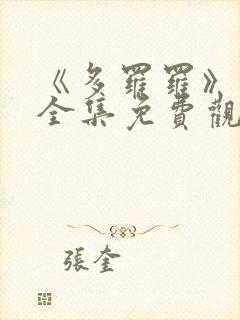 《多羅羅》
全集免費觀
張奎